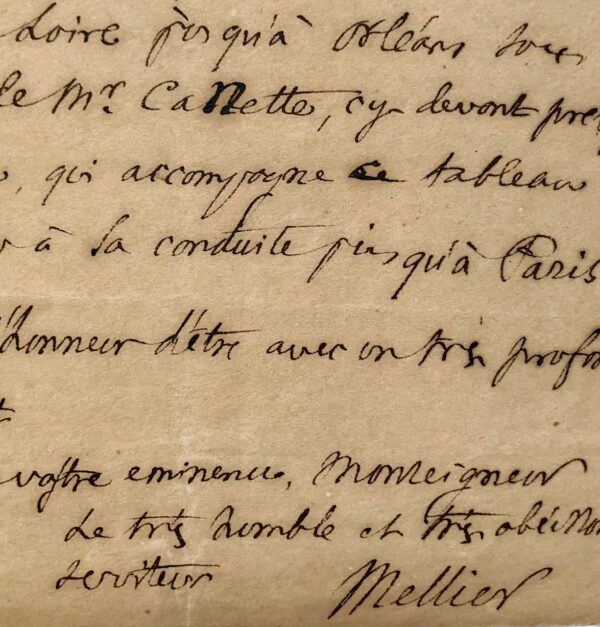 Loire jusqu'à Orléans sous
le Mr. Canette, cy devant pre
, qui accompagne ce tableau
à sa conduite jusqu'à Paris
d'honneur d'être avec un très profon
t
votre eminence, Monseigneur
Le très humble et très obéissan
serviteur Mellier